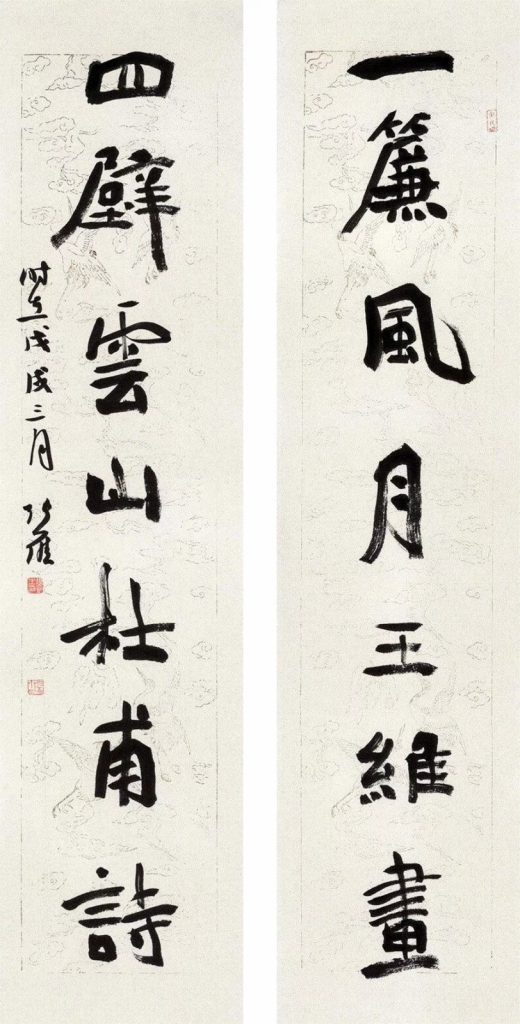 一簾風月王維畫
四壁雲山杜甫詩
時在戊戌三月